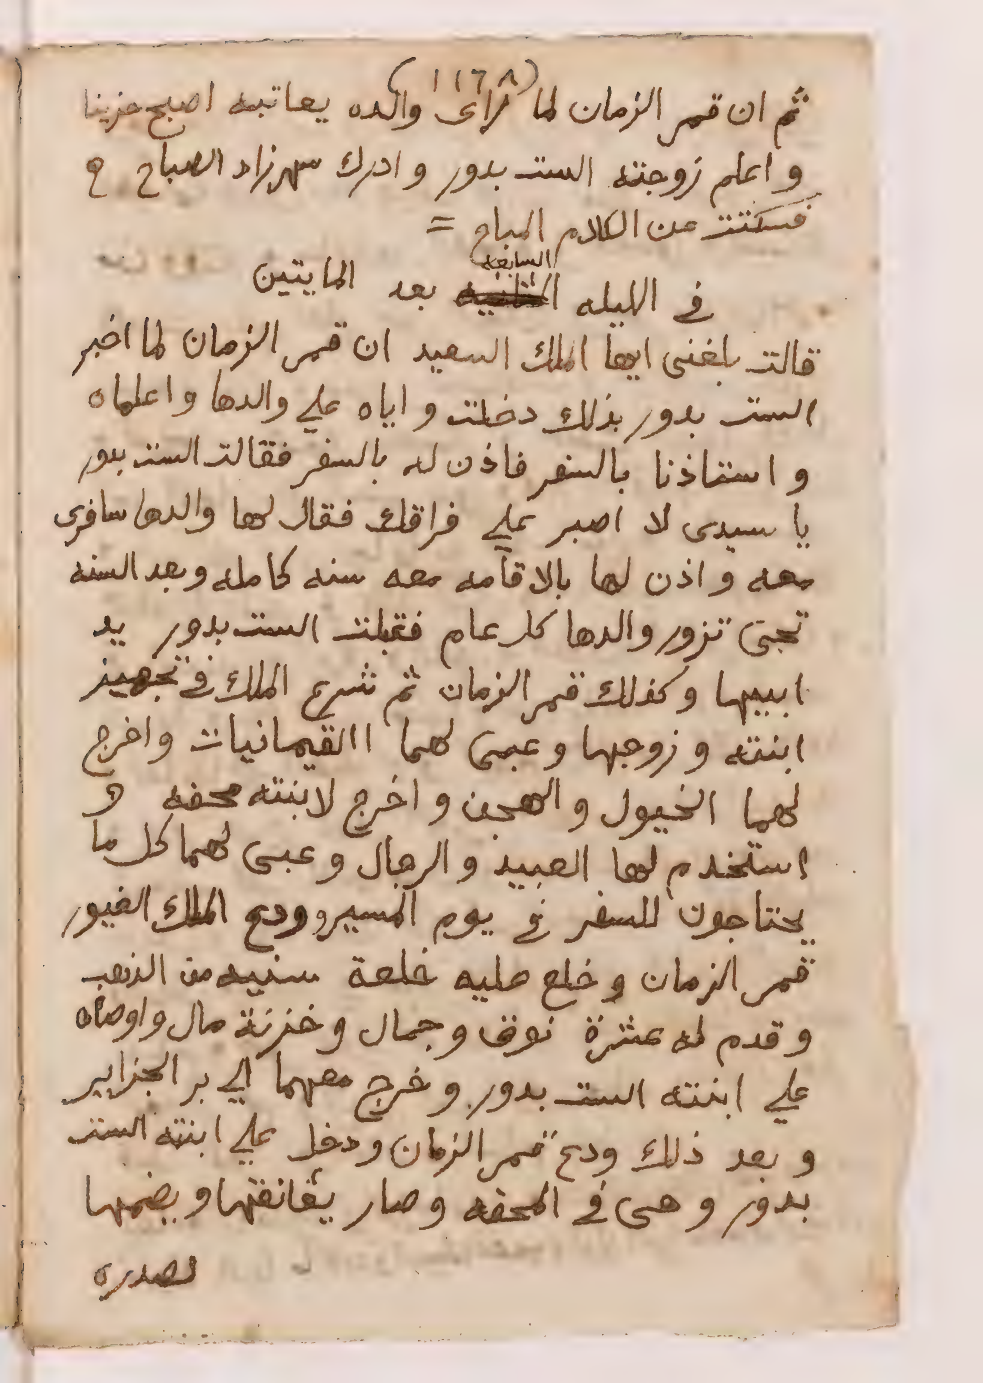 (١١٦٨)
ثم ان قمر الزمان لما تراى والده يعاتبه اصبح حزينا
و اعلم زوجته الست بدور و ادرك شهرزاد الصباح
فسكتت عن الكلام المباح =
السابعه
في الليله الثانيه بعد المايتين
قالت بلغنى ايها الملك السعيد ان قمر الزمان لما اخبر
الست بدور بذلك دخلت و اياه علي والدها و اعلماه
و استاذنا بالسفر فاذن له بالسفر فقالت الست بدور
يا سيدى لا اصبر علي فراقك فقال لها والدها سافرى
معه و اذن لها بالاقامه معه سنه كامله وبعد السنه
تجى تزور والدها كل عام فقبلت الست بدور يد
ابيها وكذلك قمر الزمان ثم شرع الملك في تجهيز
ابنته و زوجها و عبى لهما االقيمانيات و اخرج
لهما الخيول و الهجن و اخرج لابنته محفه و
استخدم لها العبيد و الرجال و عبى لهما كل ما
يحتاجون للسفر في يوم المسير وودع الملك الغيور
قمر الزمان و خلع عليه خلعة سنيه من الذهب
و قدم له عشرة نوق و جمال و خزنة مال و اوصاه
علي ابنته الست بدور و خرج معهما الي بر الجزاير
و بعد ذلك ودع قمر الزمان و دخل علي ابنته الست
بدور و هى في المحفه و صار يعانقها و يضمها
لصدره